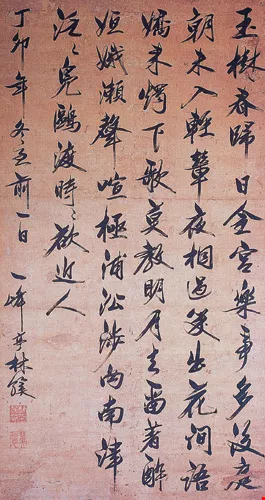 玉樹春歸日金宮樂事多後庭
朝未入輕輦夜相過笑出花間語
嬌來燭下歌莫教明月去留著醉
姮娥瀨聲喧極浦沿涉向南津
泛〻鳧鷗渡時〻欲近人
丁卯年冬至前一日一峰亭林